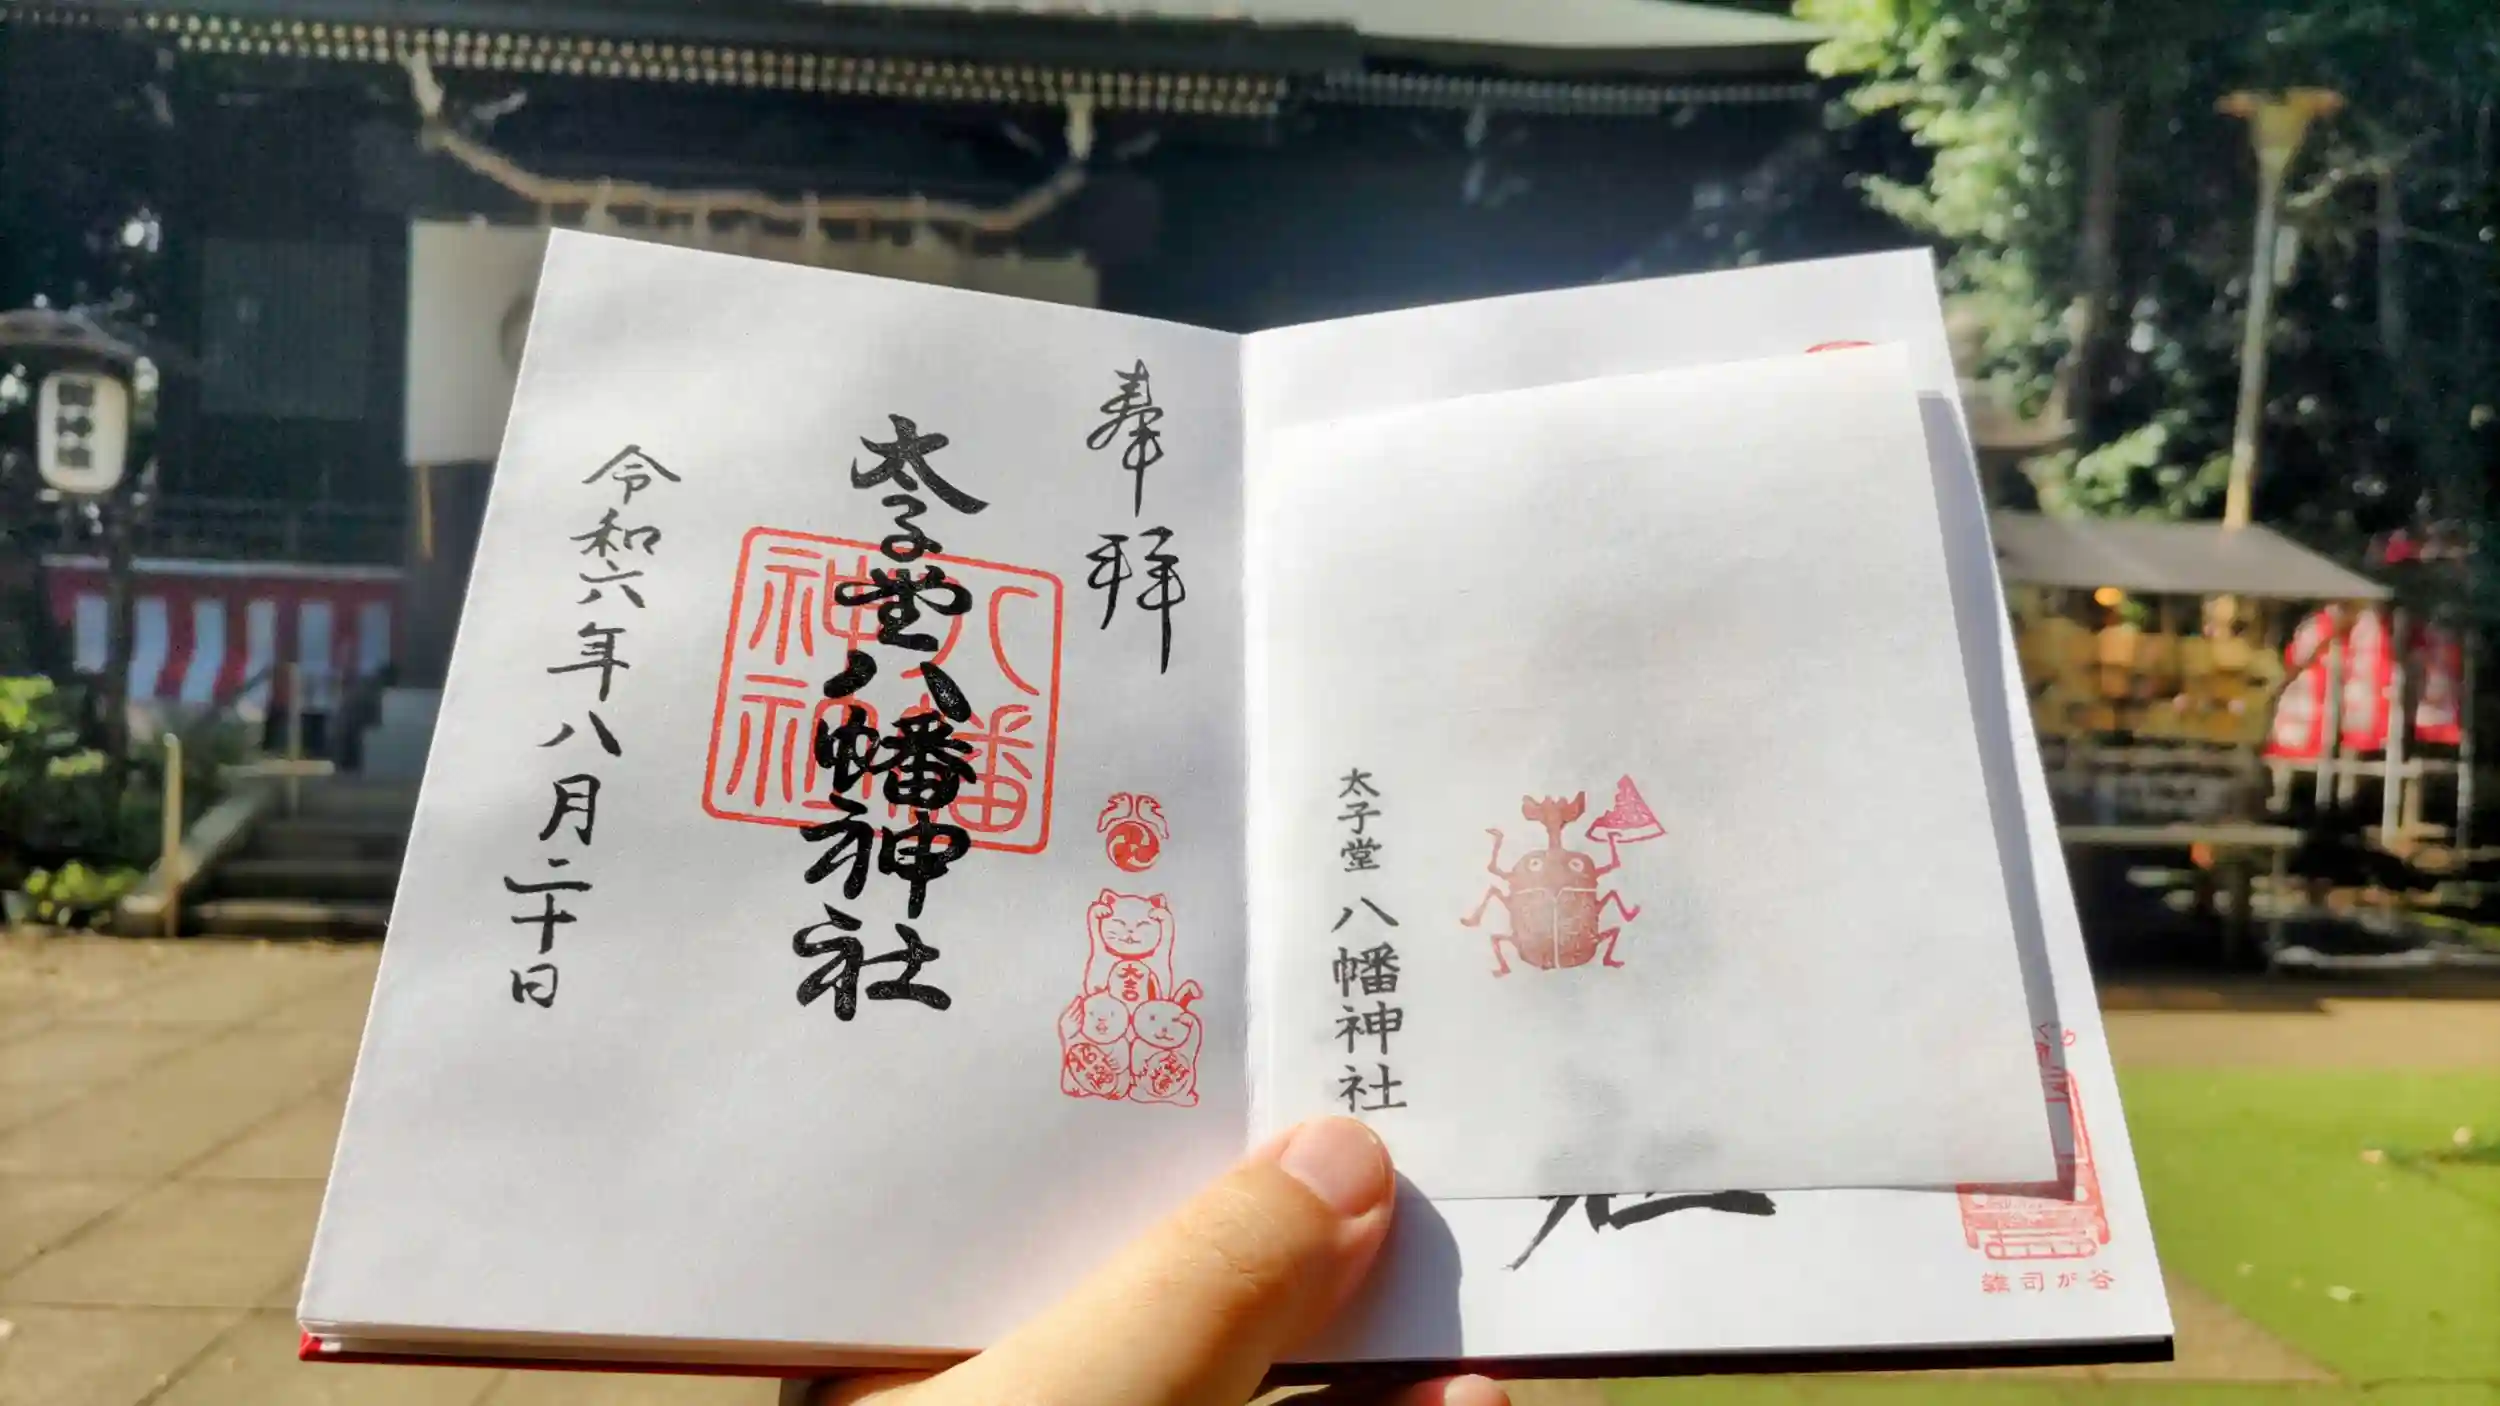 奉拝
太子堂八幡神社
八幡
神社
大吉
令和六年八月二十日
太子堂八幡神社
雑司が谷
御神燈